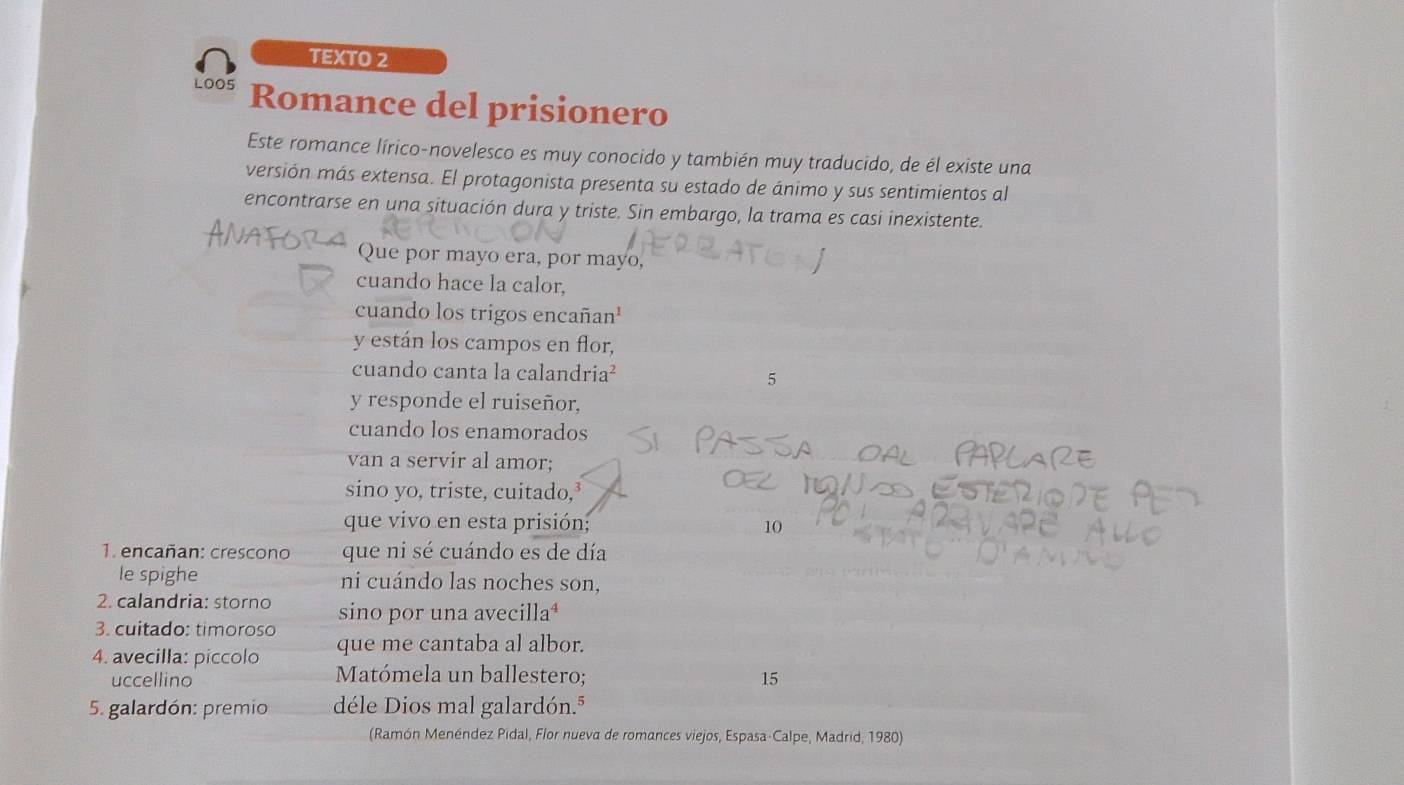 TEXTO 2
L005
Romance del prisionero
Este romance lírico-novelesco es muy conocido y también muy traducido, de él existe una
versión más extensa. El protagonista presenta su estado de ánimo y sus sentimientos al
encontrarse en una situación dura y triste. Sin embargo, la trama es casi inexistente.
ANAFORA REPETICION IPERBATON
Que por mayo era, por mayo,
cuando hace la calor,
cuando los trigos encañan¹
y están los campos en flor,
cuando canta la calandria² 5
y responde el ruiseñor,
cuando los enamorados
van a servir al amor;
SI PASSA DAL PARLARE
sino yo, triste, cuitado,³
DEL MONDO ESTERIORE PER
que vivo en esta prisión; 10
POI ALLO
que ni sé cuándo es de día
STATO D'ANIMO
ni cuándo las noches son,
sino por una avecilla⁴
que me cantaba al albor.
Matómela un ballestero; 15
déle Dios mal galardón.⁵
1. encañan: crescono
le spighe
2. calandria: storno
3. cuitado: timoroso
4. avecilla: piccolo
uccellino
5. galardón: premio
(Ramón Menéndez Pidal, Flor nueva de romances viejos, Espasa-Calpe, Madrid, 1980)